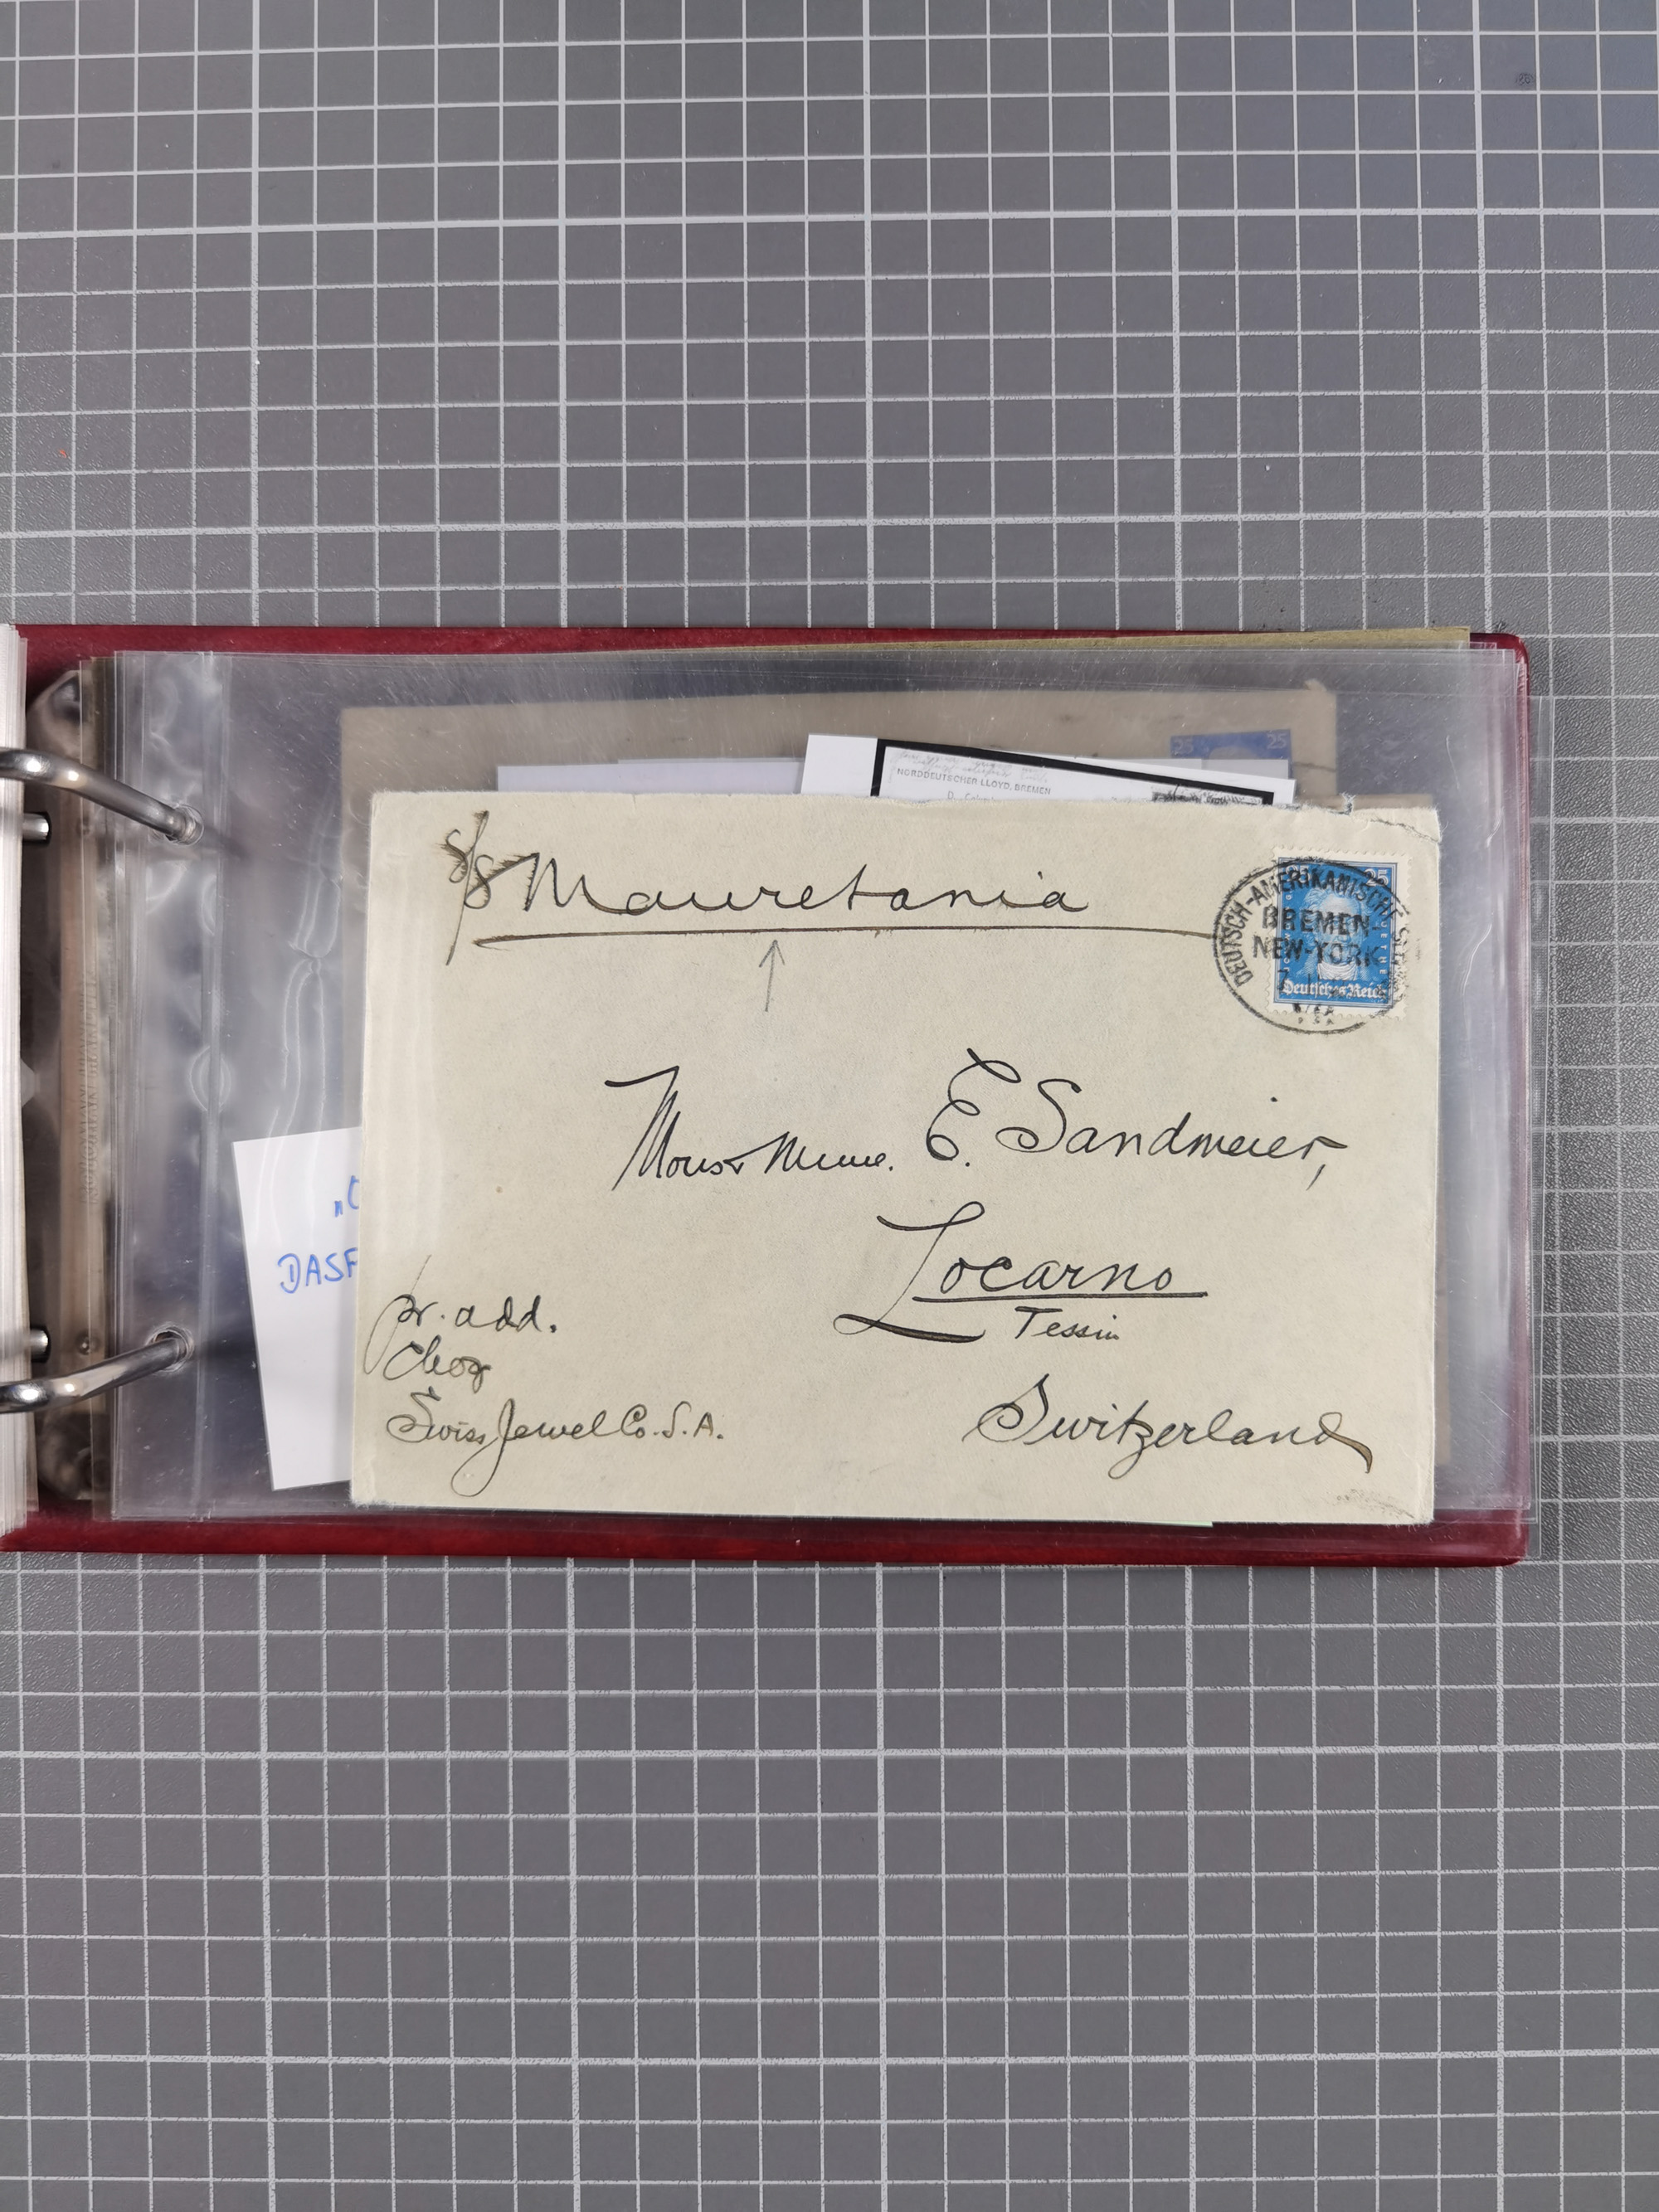 25 25
NORDDEUTSCHER LLOYD, BREMEN
S/S Mauretania
25
DEUTSCH-AMERIKANISCHE
BREMEN-
NEW-YORK
Deutsches Reich
Mons & Mme. E. Sandmeier,
Locarno
Tessin
Switzerland
pr. add.
Chez
Swiss Jewel Co. S. A.
DASF